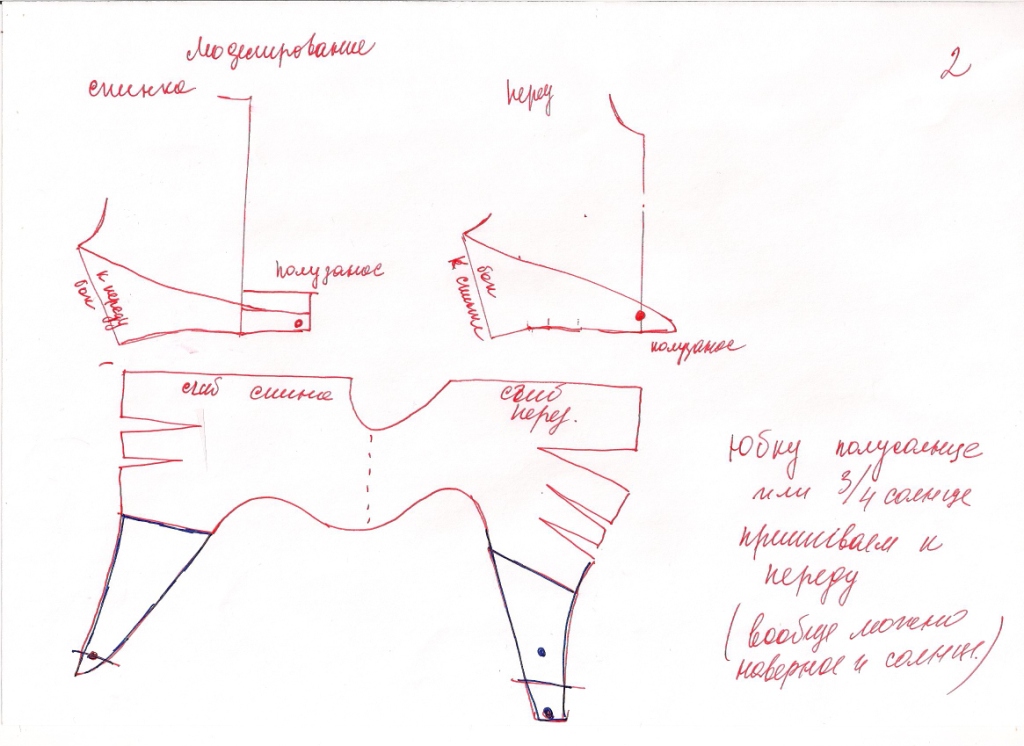 моделирование
2
спинка
перед
полузанос
к переду
бок
бок
к спинке
полузанос
сгиб спинка
сгиб
перед.
Юбку полусолнце
или 3/4 солнце
пришиваем к
переду
(вообще можно
наверное и солнце.)